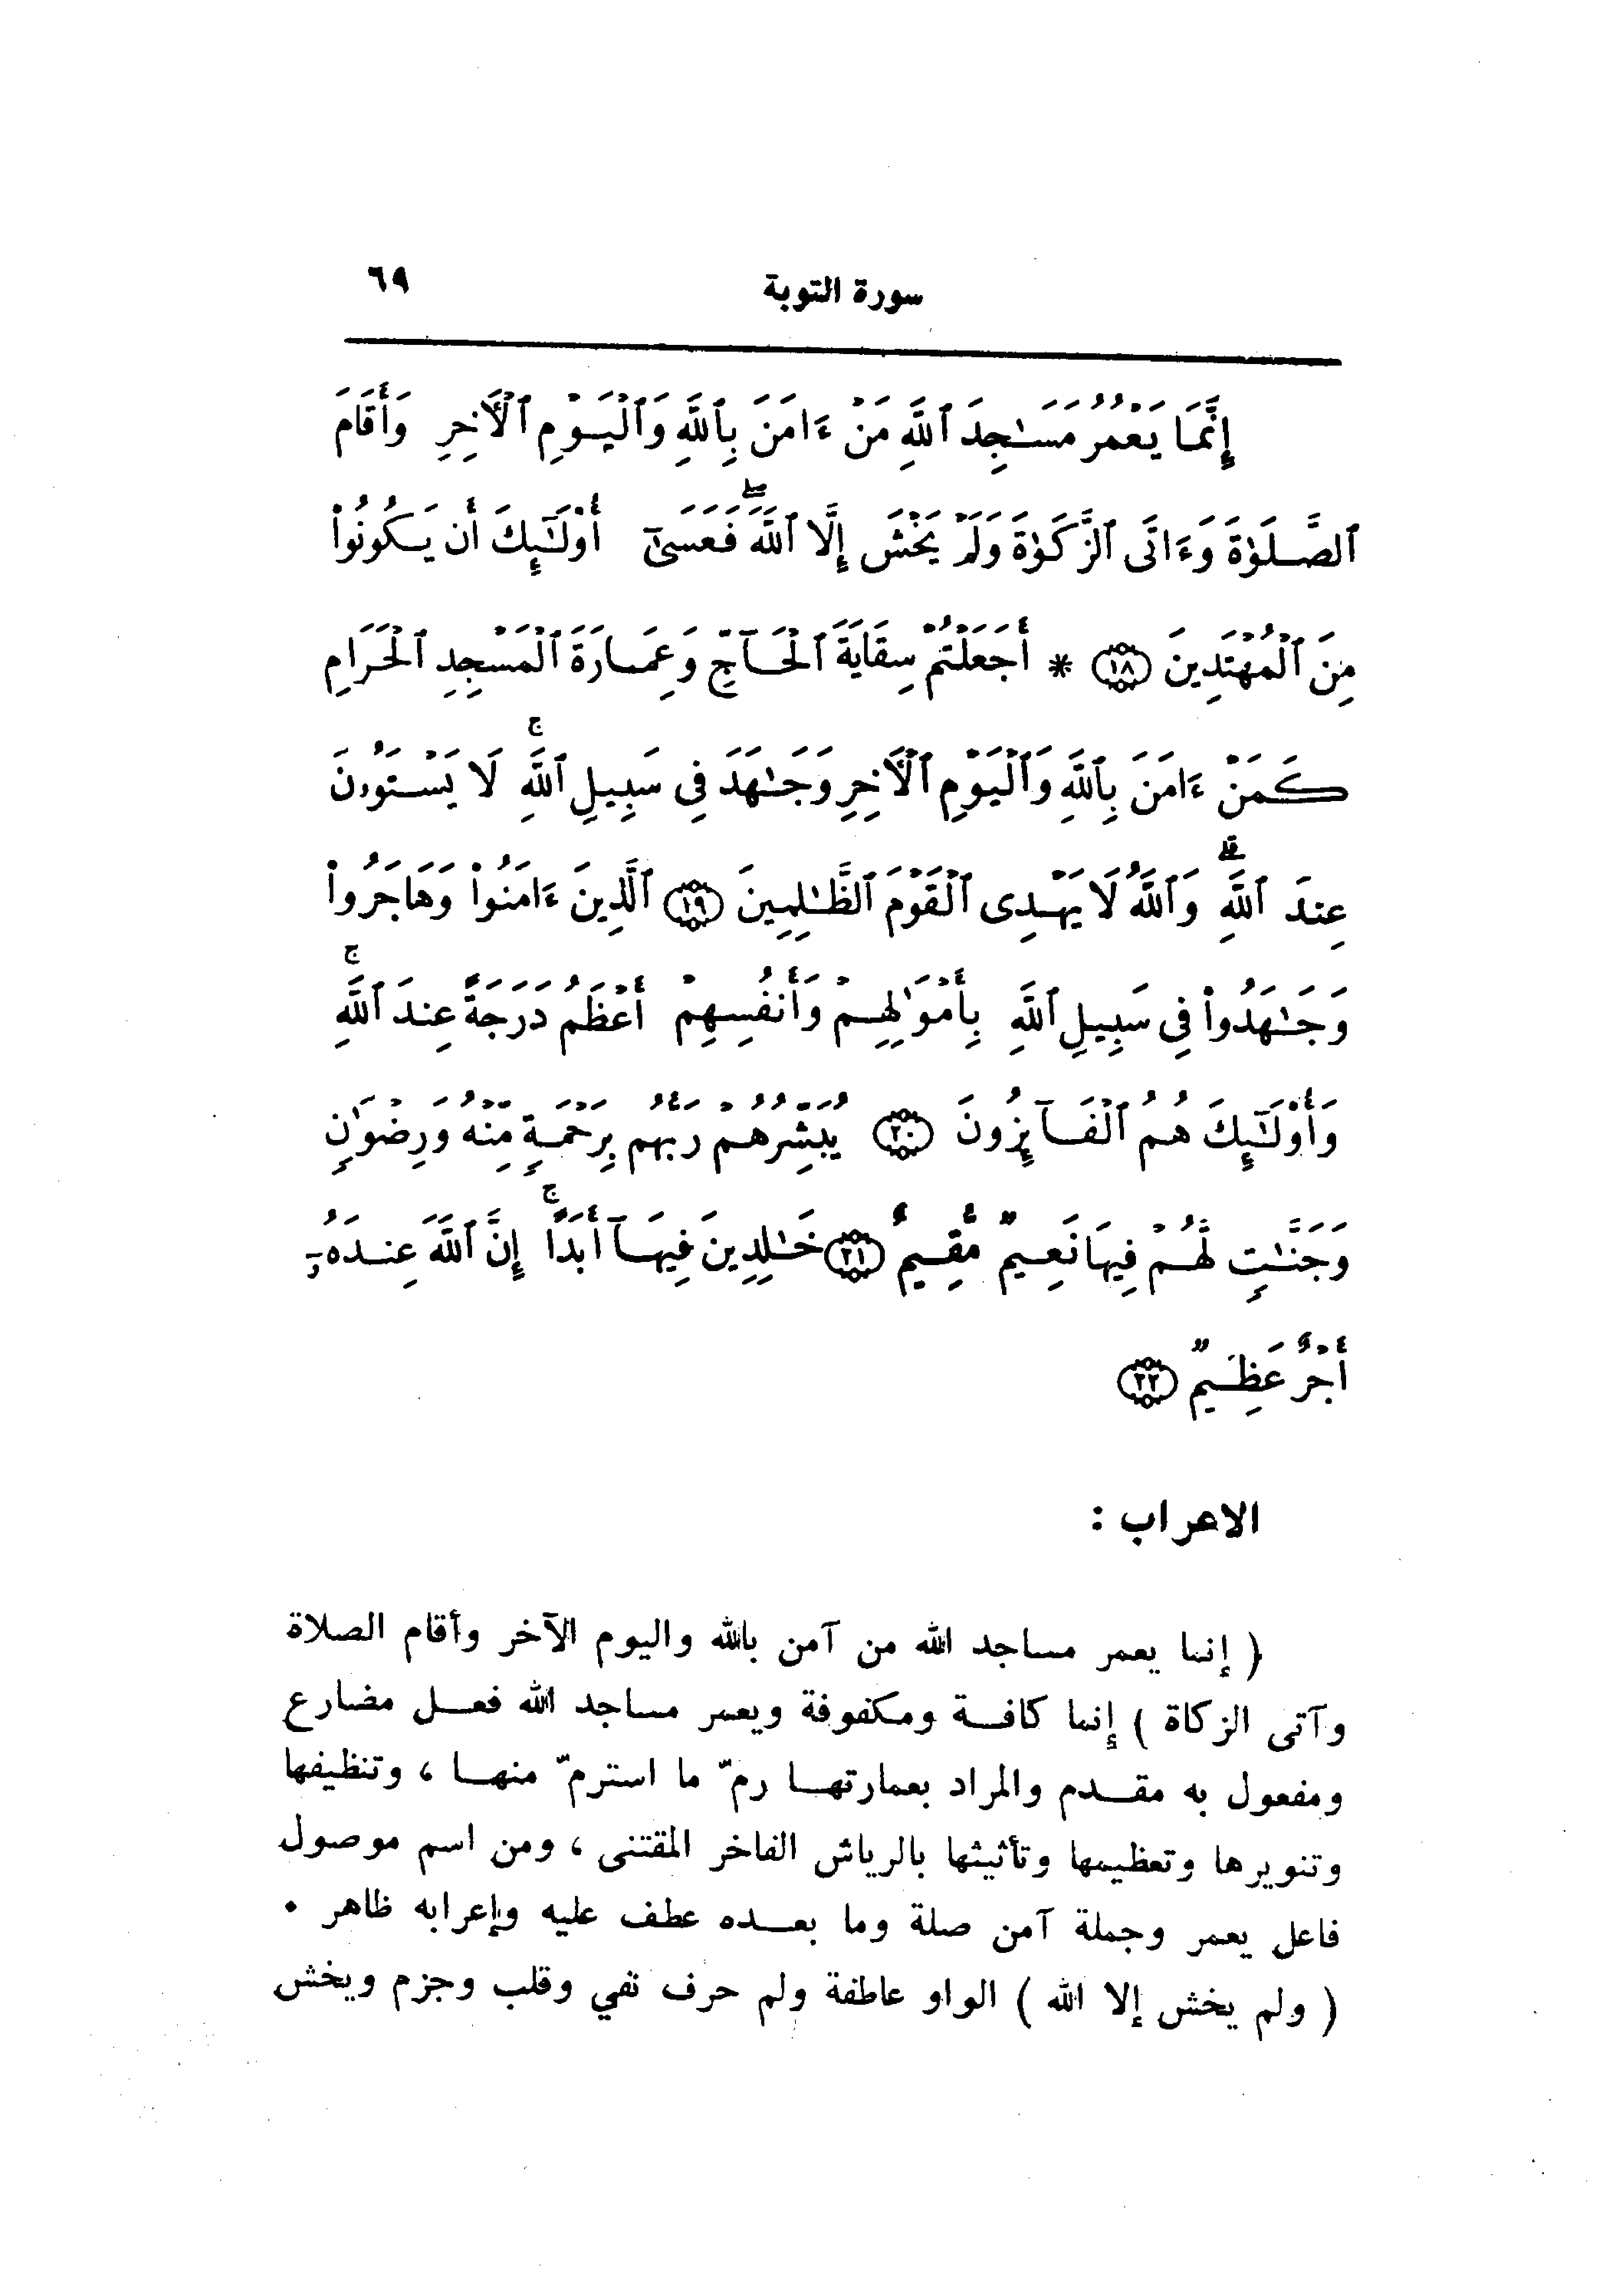 سورة التوبة ٦٩
إِنَّمَا يَعْمُرُ مَسَـٰجِدَ ٱللَّهِ مَنْ ءَامَنَ بِٱللَّهِ وَٱلْيَوْمِ ٱلْأَخِرِ وَأَقَامَ
ٱلصَّلَوٰةَ وَءَاتَى ٱلزَّكَوٰةَ وَلَمْ يَخْشَ إِلَّا ٱللَّهَ ۖ فَعَسَىٰٓ أُوْلَـٰٓئِكَ أَن يَكُونُوا۟
مِنَ ٱلْمُهْتَدِينَ ﴿١٨﴾ * أَجَعَلْتُمْ سِقَايَةَ ٱلْحَآجِّ وَعِمَارَةَ ٱلْمَسْجِدِ ٱلْحَرَامِ
كَمَنْ ءَامَنَ بِٱللَّهِ وَٱلْيَوْمِ ٱلْأَخِرِ وَجَـٰهَدَ فِى سَبِيلِ ٱللَّهِ ۚ لَا يَسْتَوُۥنَ
عِندَ ٱللَّهِ ۗ وَٱللَّهُ لَا يَهْدِى ٱلْقَوْمَ ٱلظَّـٰلِمِينَ ﴿١٩﴾ ٱلَّذِينَ ءَامَنُوا۟ وَهَاجَرُوا۟
وَجَـٰهَدُوا۟ فِى سَبِيلِ ٱللَّهِ بِأَمْوَٰلِهِمْ وَأَنفُسِهِمْ أَعْظَمُ دَرَجَةً عِندَ ٱللَّهِ ۚ
وَأُوْلَـٰٓئِكَ هُمُ ٱلْفَآئِزُونَ ﴿٢٠﴾ يُبَشِّرُهُمْ رَبُّهُم بِرَحْمَةٍ مِّنْهُ وَرِضْوَٰنٍ
وَجَنَّـٰتٍ لَّهُمْ فِيهَا نَعِيمٌ مُّقِيمٌ ﴿٢١﴾ خَـٰلِدِينَ فِيهَآ أَبَدًا ۚ إِنَّ ٱللَّهَ عِندَهُۥٓ
أَجْرٌ عَظِيمٌ ﴿٢٢﴾
الاعراب :
( إنما يعمر مساجد الله من آمن بالله واليوم الآخر وأقام الصلاة
وآتى الزكاة ) إنما كافة ومكفوفة ويعمر مساجد الله فعل مضارع
ومفعول به مقدم والمراد بعمارتها رمّ ما استرمّ منها ، وتنظيفها
وتنويرها وتعظيمها وتأثيثها بالرياش الفاخر المقتنى ، ومن اسم موصول
فاعل يعمر وجملة آمن صلة وما بعده عطف عليه وإعرابه ظاهر .
( ولم يخش إلا الله ) الواو عاطفة ولم حرف نفي وقلب وجزم ويخش